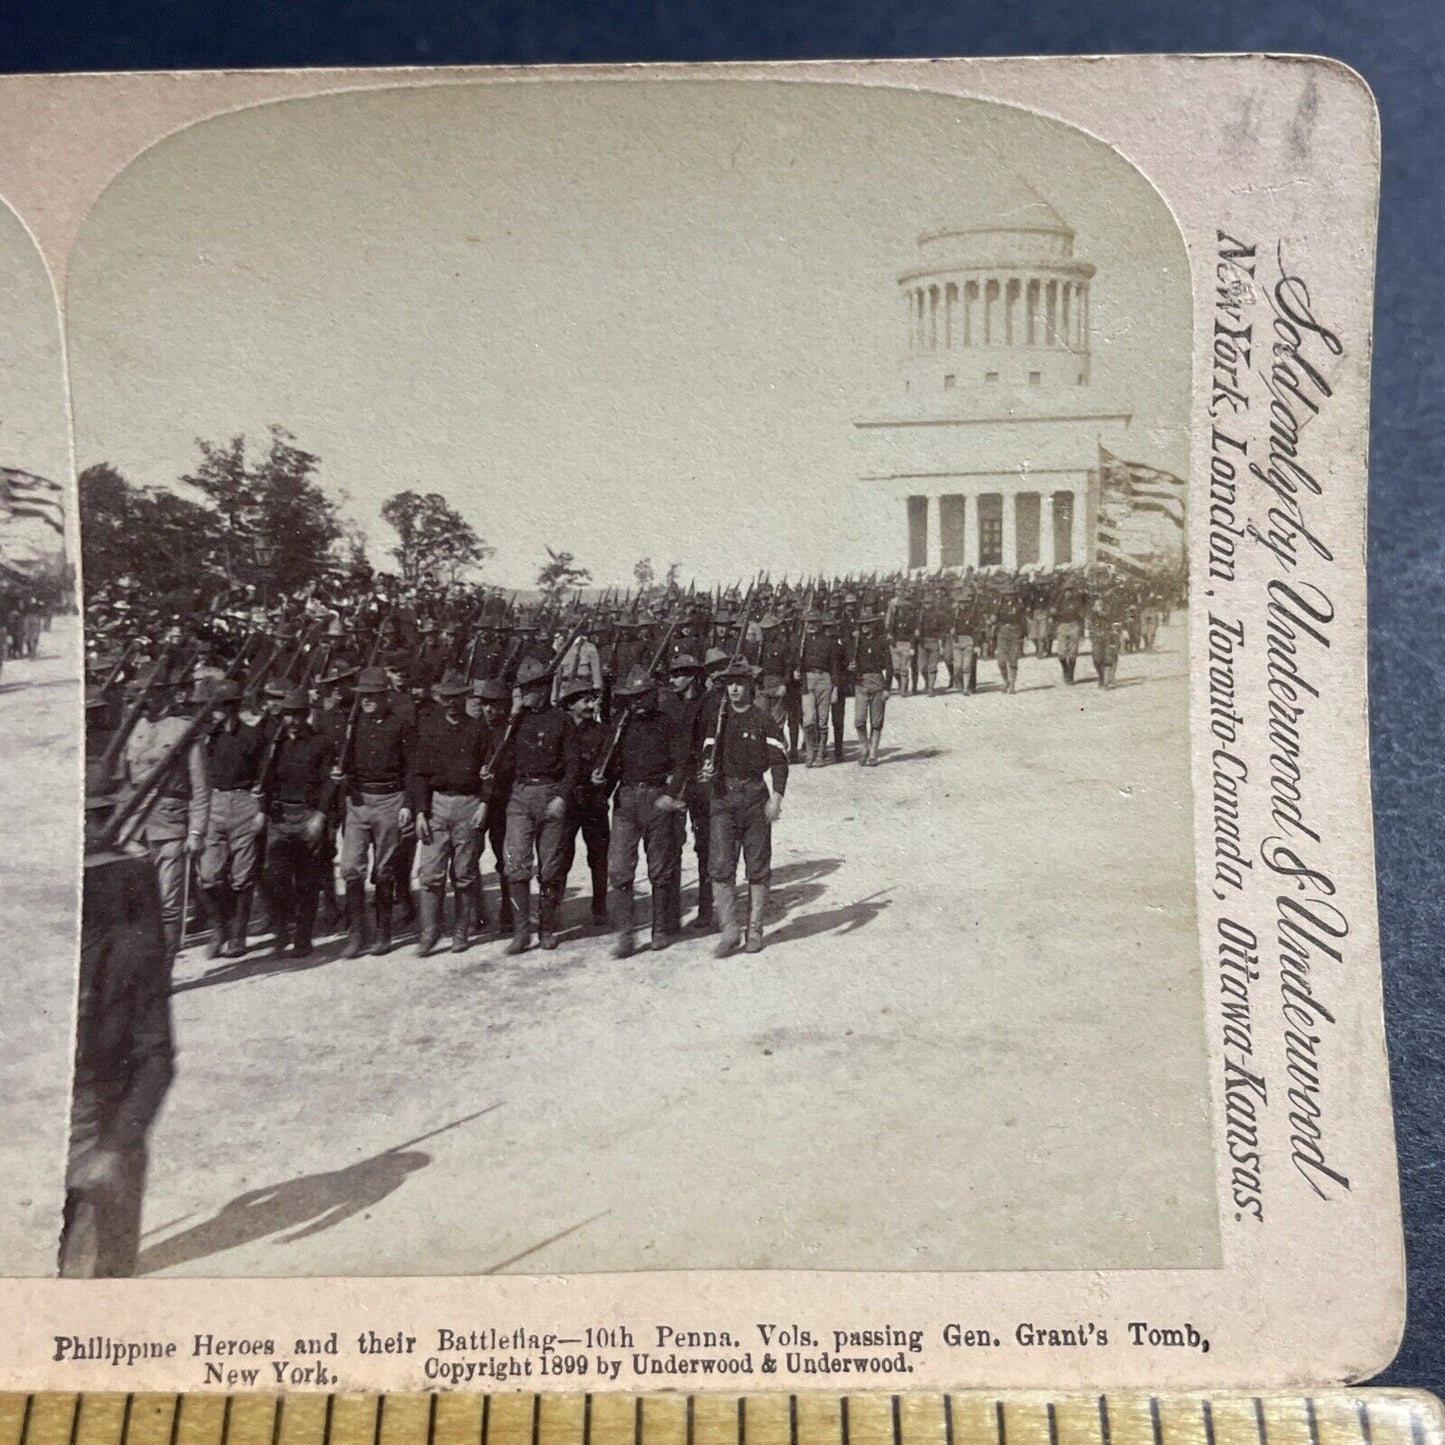 Sold only by Underwood & Underwood
New York, London, Toronto-Canada, Ottawa-Kansas.
Philippine Heroes and their Battleflag—10th Penna. Vols. passing Gen. Grant's Tomb,
New York. Copyright 1899 by Underwood & Underwood.